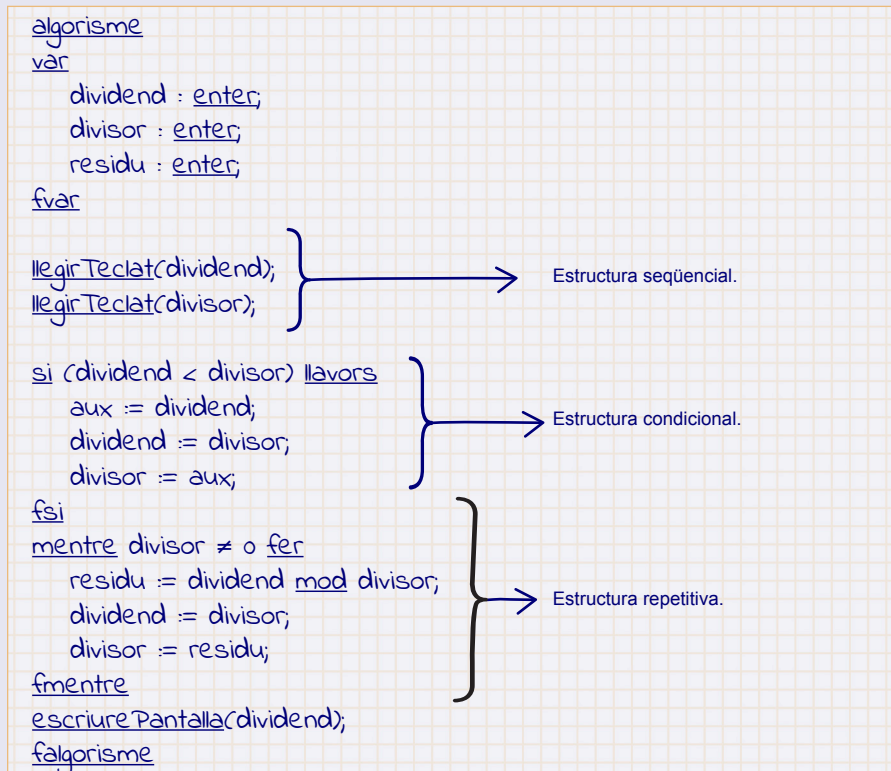 algorisme
var
dividend : enter;
divisor : enter;
residu : enter;
fvar
llegirTeclat(dividend);
llegirTeclat(divisor);
Estructura seqüencial.
si (dividend < divisor) llavors
aux := dividend;
dividend := divisor;
divisor := aux;
Estructura condicional.
fsi
mentre divisor ≠ 0 fer
residu := dividend mod divisor;
dividend := divisor;
divisor := residu;
Estructura repetitiva.
fmentre
escriurePantalla(dividend);
falgorisme